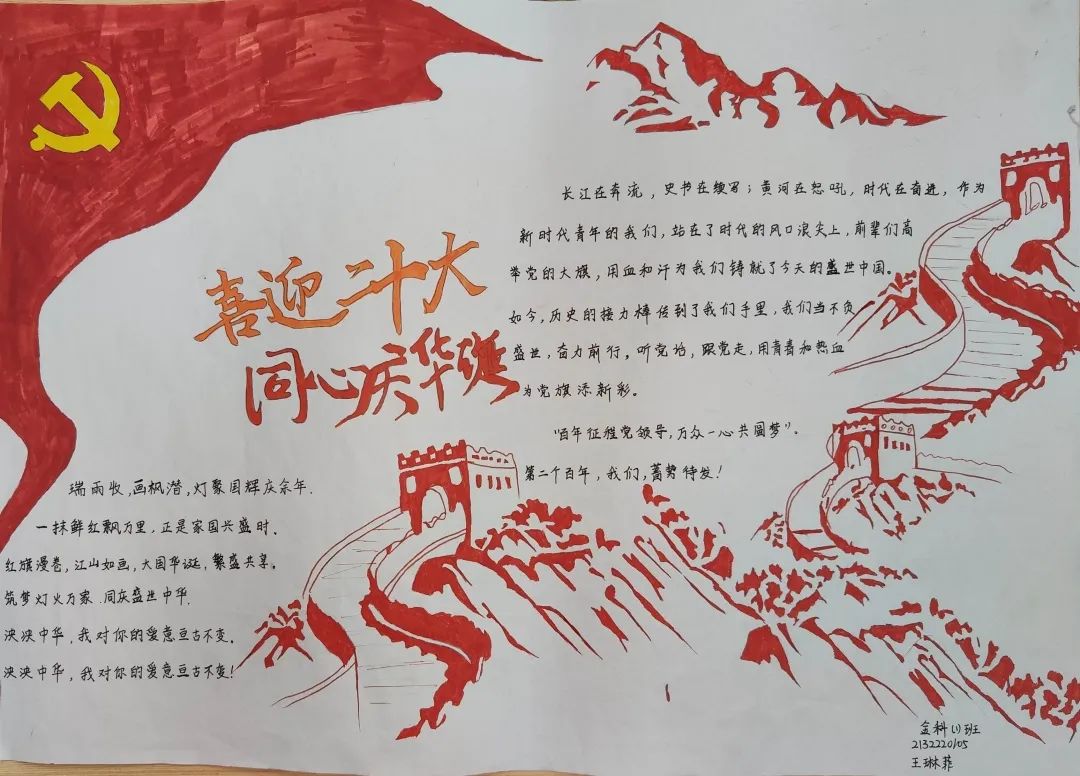 喜迎二十大
同心庆华诞
长江在奔流，史书在续写；黄河在怒吼，时代在奋进，作为
新时代青年的我们，站在了时代的风口浪尖上，前辈们高
举党的大旗，用血和汗为我们铸就了今天的盛世中国。
如今，历史的接力棒传到了我们手里，我们当不负
盛世，奋力前行。听党话，跟党走，用青春和热血
为党旗添新彩。
“百年征程党领导，万众一心共圆梦”。
第二个百年，我们，蓄势待发！
瑞雨收，画枫潜，灯聚国辉庆余年.
一抹鲜红飘万里，正是家国兴盛时.
红旗漫卷，江山如画，大国华诞，繁盛共享。
筑梦灯火万家.同庆盛世中华.
泱泱中华，我对你的爱意亘古不变。
泱泱中华，我对你的爱意亘古不变！
金科(1)班
2132220105
王琳菲